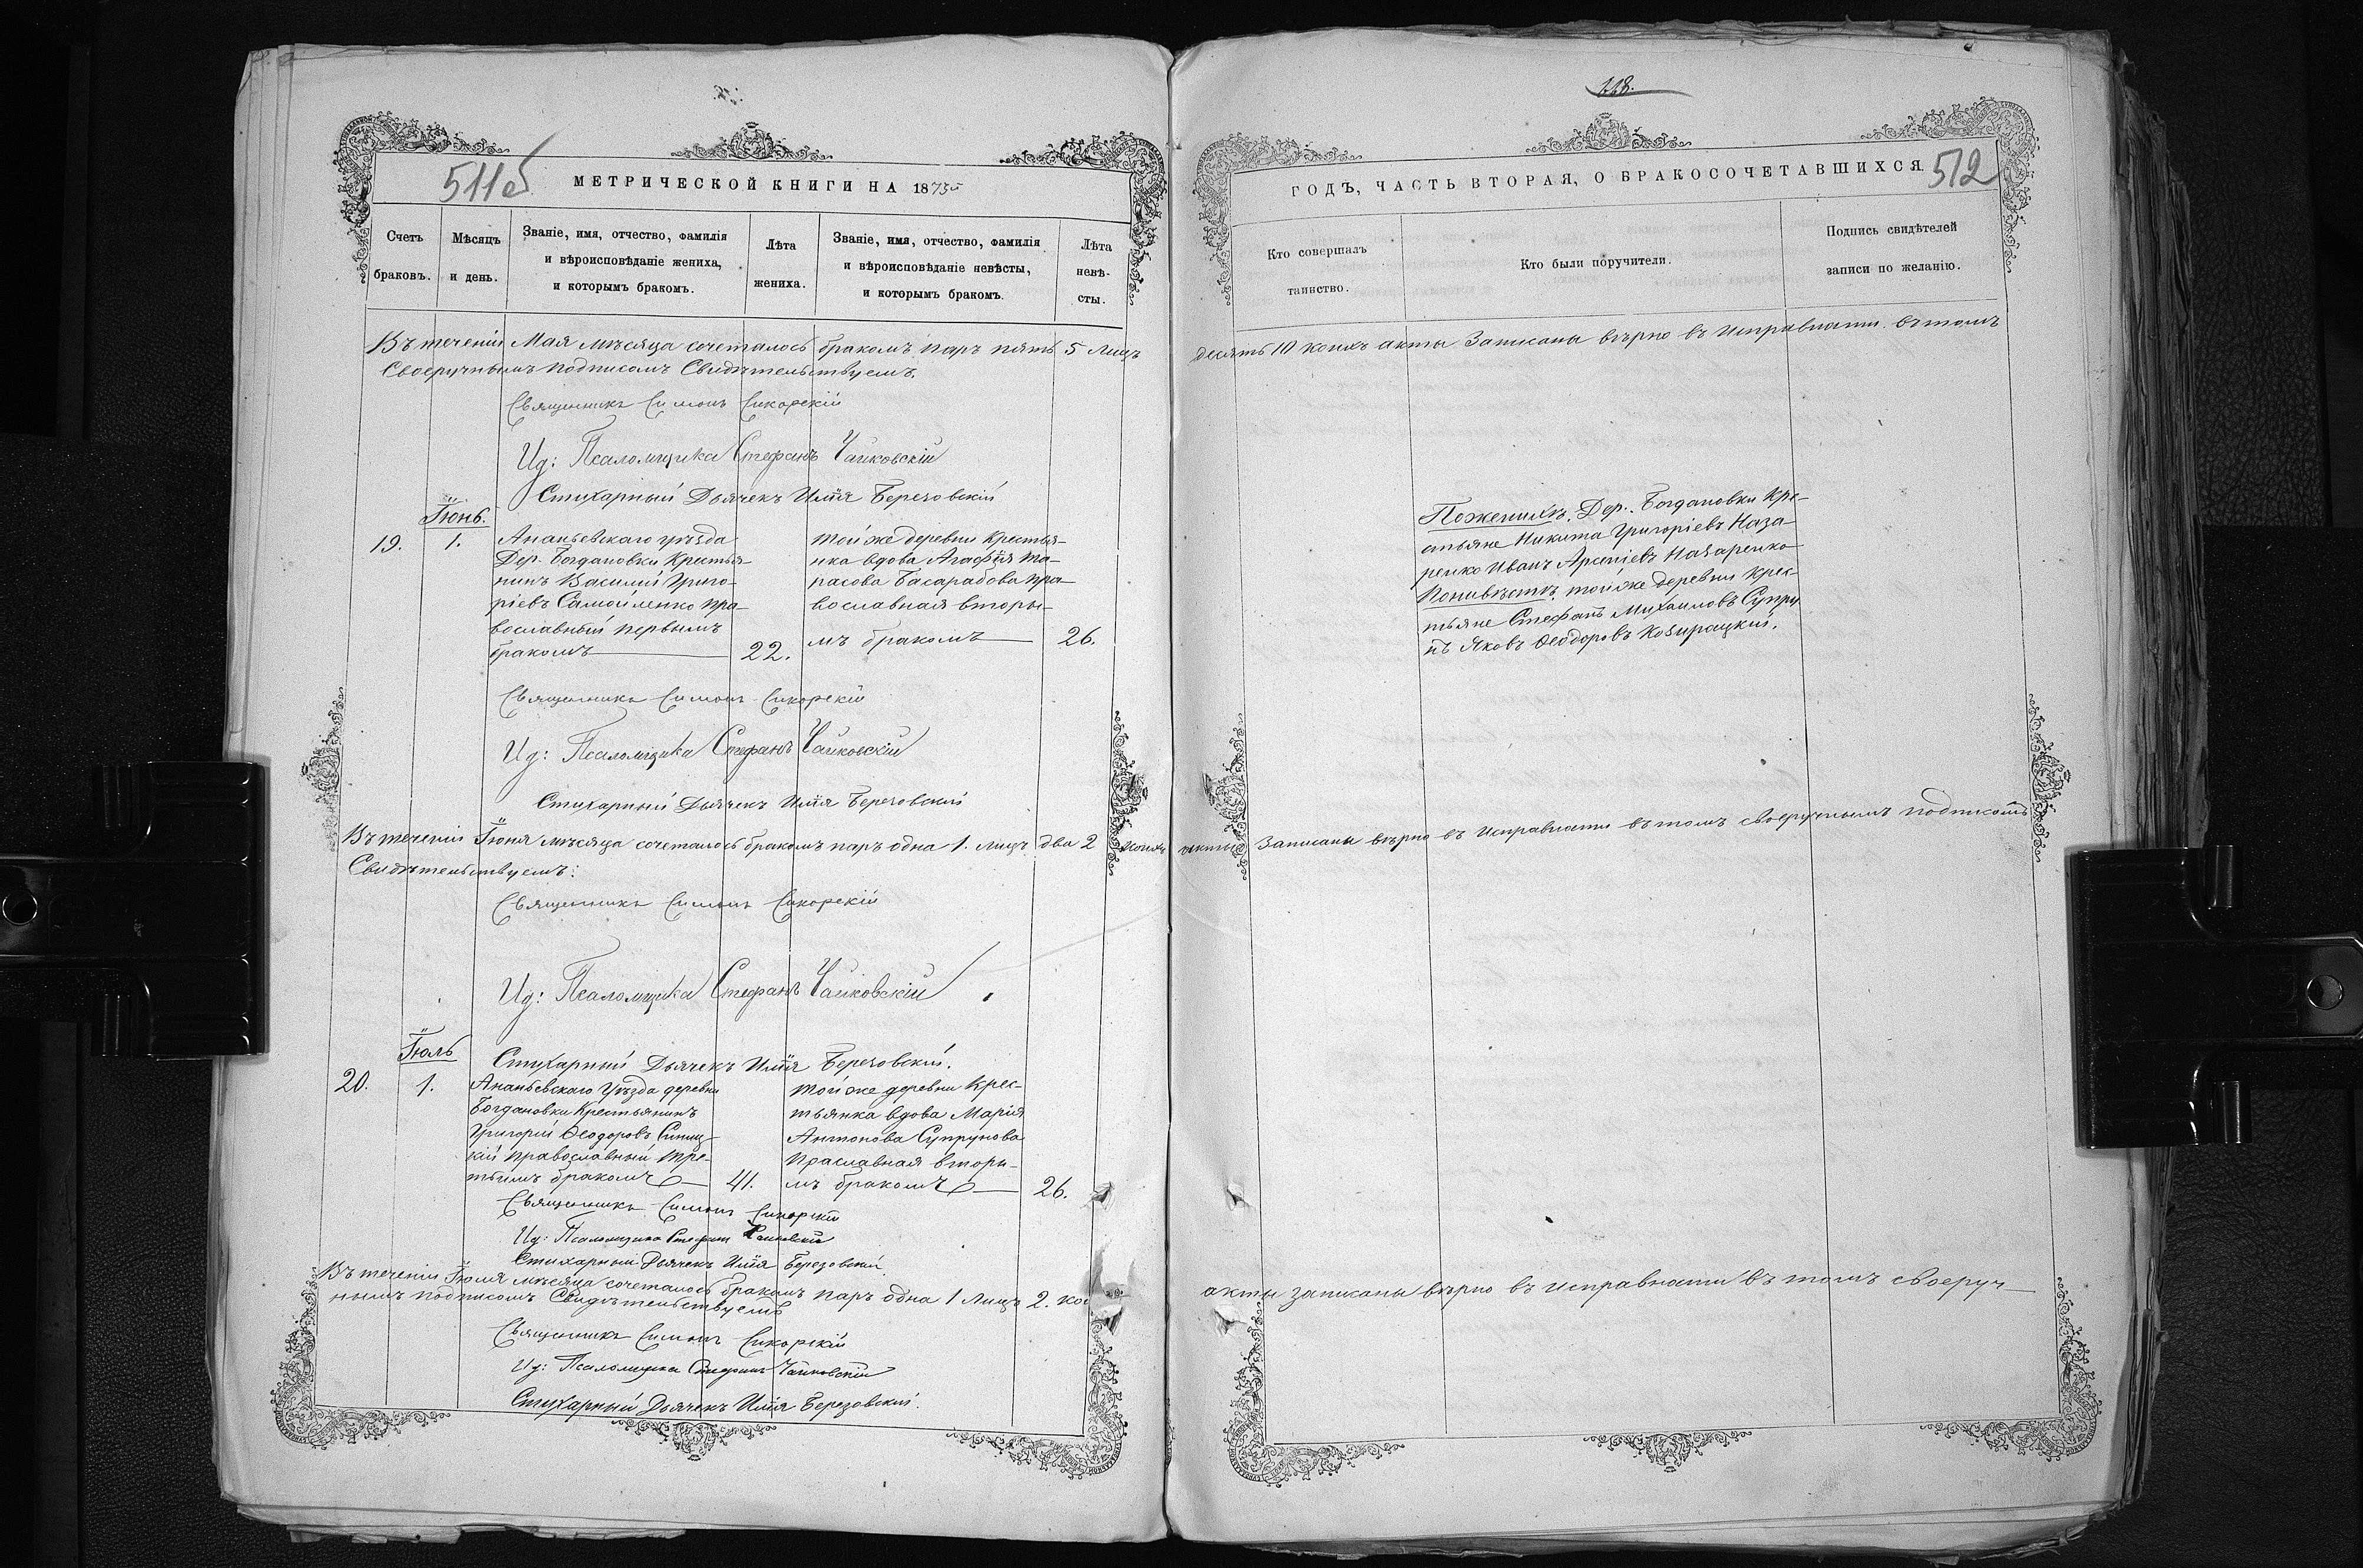 118.
511об
МЕТРИЧЕСКОЙ КНИГИ НА 1873й
ГОДЪ, ЧАСТЬ ВТОРАЯ, О БРАКОСОЧЕТАВШИХСЯ.
512
Счетъ браковъ.
Мѣсяцъ и день.
Званіе, имя, отчество, фамилія
и вѣроисповѣданіе жениха,
и которымъ бракомъ.
Лѣта
жениха.
Званіе, имя, отчество, фамилія
и вѣроисповѣданіе невѣсты,
и которымъ бракомъ.
Лѣта
невѣ-
сты.
Кто совершалъ
таинство.
Кто были поручители.
Подпись свидѣтелей
записи по желанію.
Въ теченіи Мая мѣсяца сочеталось бракомъ паръ пять 5 лицъ десять 10 коихъ акты Записаны вѣрно въ исправности въ томъ
Своеручнымъ подписомъ Свидѣтельствуемъ.
Священникъ Симонъ Сикорскій
Ид: Псаломщика Стефанъ Чайковскій
Стихарный Дьячекъ Илія Березовскій
Іюнь.
19.
1.
Ананьевскаго уѣзда
Дер. Богдановки Крестья-
нинъ Василий Григо-
ріевъ Самойленко пра-
вославный первымъ
бракомъ
22.
той же деревни крестья-
нка вдова Агафія Та-
расова Басарабова пра-
вославная вторы-
мъ бракомъ
26.
По женихѣ, Дер. Богдановки кре-
стьяне Никита Григоріевъ Наза-
ренко Иванъ Арсеніевъ Назаренко
По невѣстѣ, той же деревни крес-
тьяне Стефанъ Михаиловъ Супру
нъ Яковъ Ѳеодоровъ
Священникъ Симонъ Сикорскій
Ид: Псаломщика Стефанъ Чайковскій
Стихарный Дьячекъ Илія Березовскій
Въ теченіи Іюня мѣсяца сочеталось бракомъ паръ одна 1. лицъ два 2 коихъ акты Записаны вѣрно въ исправности въ томъ своеручнымъ подписомъ
Свидѣтельствуемъ:
Священникъ Симонъ Сикорскій
Ид: Псаломщика Стефанъ Чайковскій
Стихарный Дьячекъ Илія Березовский.
Іюль
20.
1.
Ананьевскаго Уѣзда деревни
Богдановки Крестьянинъ
Григорій Ѳеодоровъ Синиц-
кій православный тре-
тьимъ бракомъ
41.
той же деревни крес-
тьянка вдова Марія
Антонова Супрунова
праславная вторы-
мъ бракомъ
26.
Священникъ Симонъ Сикорскій
Ид: Псаломщика Стефанъ Чайковскій
Стихарный Дьячекъ Илія Березовский
Въ теченіи Іюля мѣсяца сочеталось бракомъ паръ одна 1 лицъ 2. кои акты записаны вѣрно въ исправности въ томъ своеруч-
нымъ подписомъ Свидѣтельствуемъ
Священникъ Симонъ Сикорскій
Ид: Псаломщика Стефанъ Чайковскій
Стихарный Дьячекъ Илія Березовский.